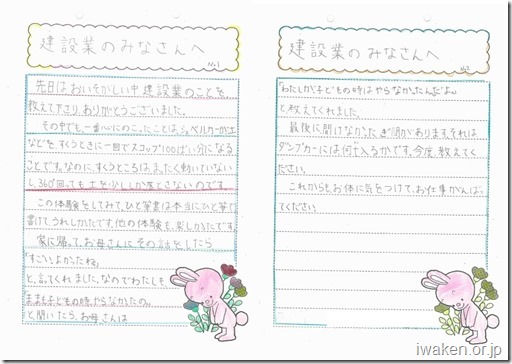 建設業のみなさんへ
No.1
先日はおいそがしい中建設業のことを
教えて下さり、ありがとうございました。
その中でも、一番心にのこったことは、ショベルカーが土
などを、すくうときに一回でスコップ100ぱい分になる
ことです。なのに、すくうところはまったく動いていない
し、360°回っても土を少ししか落とさないのです。
この体験をしてみて、ひと筆書は本当にひと筆で
書けてうれしかったです。他の体験も、楽しかったです。
家に帰って、お母さんにその話をしたら
「すごいよかったね。」
と、言ってくれました。なのでわたしも、
「ままも子どもの時やらなかったの。」
と聞いたら、お母さんは
建設業のみなさんへ
No.2
「わたしが子どもの時はやらなかったんだよ。」
と、教えてくれました。
最後に聞けなかったぎ問があります。それは
ダンプカーには何t入るかです。今度、教えてく
ださい。
これからもお体に気をつけて、お仕事がんばっ
てください。
iwaken.or.jp